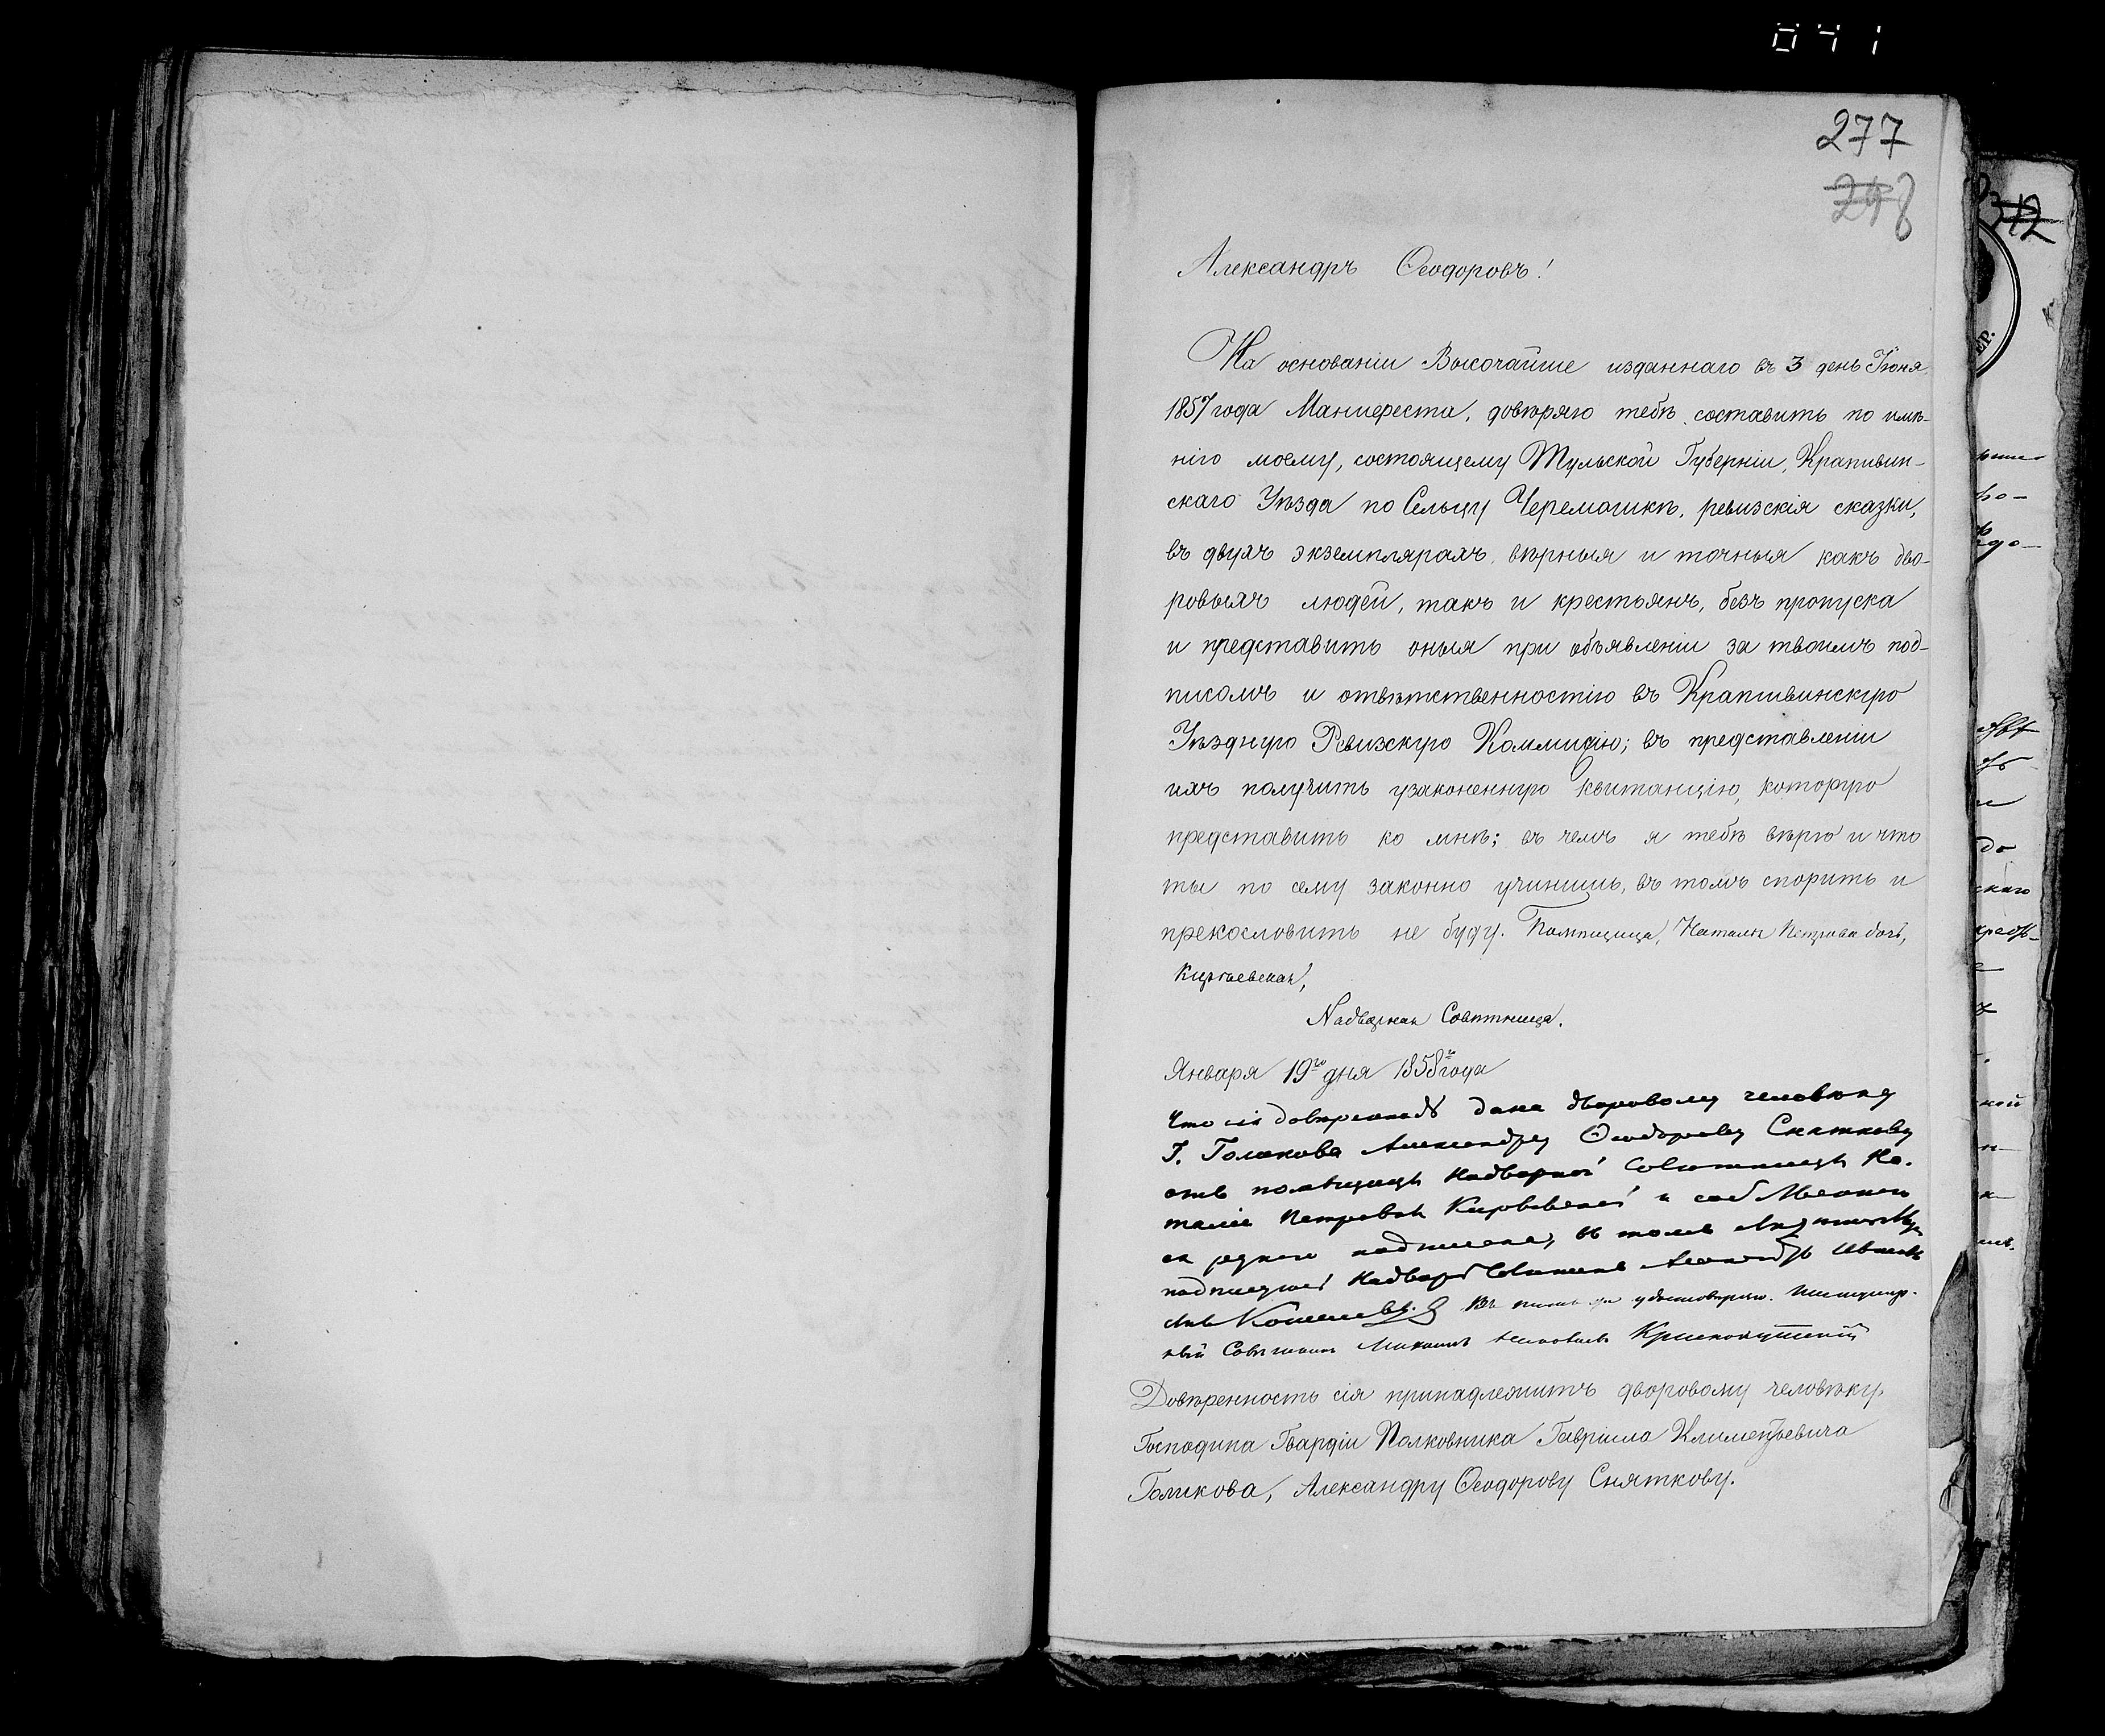 041
277
248
Александръ Ѳеодоровъ!
На основаніи Высочайше изданнаго въ 3 день Іюня
1857 года Манифеста, довѣряю тебѣ составить по имѣ-
нію моему, состоящему Тульской Губерніи, Крапивин-
скаго Уѣзда по Сельцу Черемошкѣ, ревизскія сказки,
въ двухъ экземплярахъ, вѣрныя и точныя какъ дво-
ровыхъ людей, такъ и крестьянъ, безъ пропуска
и представить оныя при объявленіи за твоимъ под-
писомъ и отвѣтственностію въ Крапивинскую
Уѣздную Ревизскую Коммисію; въ представленіи
ихъ получить узаконенную квитанцію, которую
представить ко мнѣ; въ чемъ я тебѣ вѣрю и что
ты по сему законно учинишь, въ томъ спорить и
прекословить не буду. Помѣщица, Наталья Петрова дочь,
Надворная Совѣтница.
Января 19го дня 1858го года
Что сія довѣренность дана дворовому человѣку
Г. Голикова Александру Ѳеодорову Сняткову
отъ помѣщицы Надворной Совѣтницы На-
таліи Петровны и собственною
ея рукою подписана, въ томъ
подписуюсь Надвор. Совѣтникъ
удостовѣряю. Титуляр-
ный Совѣтникъ
Довѣренность сія принадлежитъ дворовому человѣку,
Господина Гвардіи Полковника Гавріила Климентьевича
Голикова, Александру Ѳеодорову Сняткову.